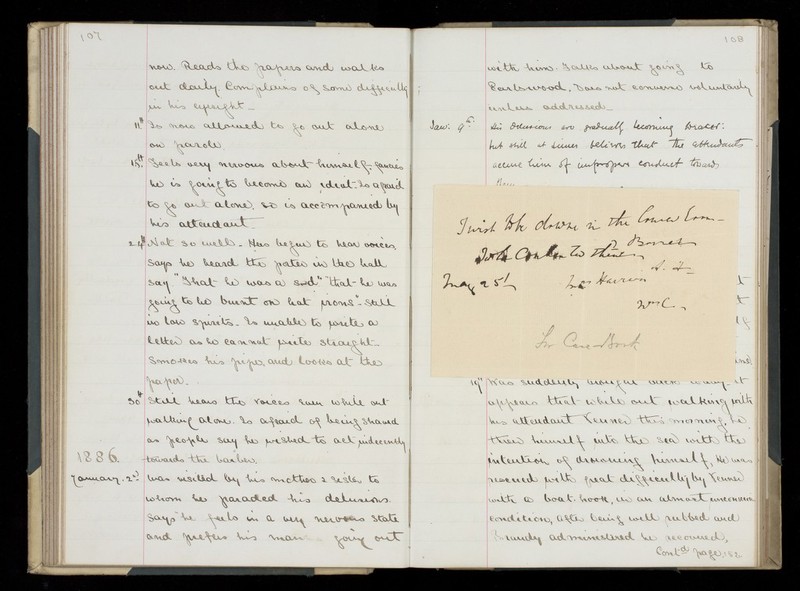 107
now. Reads the papers and walks
out daily. Complains of some difficulty
in his eyesight_
11th Is now allowed to go out alone
on parole.
15th Feels very nervous about himself_ fancies
he is going to become an idiot. Is afraid
to go out alone, so is accompanied by
his attendant.
24th Not so well. Has begun to hear voices
says he heard the in the hall
say "that he was a sod" "that he was
going to be burnt on hot irons". Still
in low spirits. Is unable to write a
letter as he cannot write straight_
Smokes his pipe, and looks at the
paper.
30th Still hears the voices even while out
walking alone. Is afraid of being shaved
as people say he wished to act indecently
1886. towards the barber.
January. 2nd was visited by his mother & sister to
whom he paraded his delusions.
Says he feels in a very nervous state
and prefers his man going out
108
with him. Talks about going to
Earlswood. Does not converse voluntarily
unless addressed_
Jan: 9th His Delusions are gradually becoming weaker:
but still at times believes that the attendants
accuse him of improper conduct towards
I wish to be down in the
May 25th
For Case Book
19th Was suddenly brought back
appears that while out walking with
his attendant Venner this morning, he
threw himself into the sea with the
intention of drowning himself, He was
rescued with great difficulty by Venner
with a boat-hook, in an almost unconscious
condition, after being well rubbed and
brandy administered he recovered,
Contd page 152